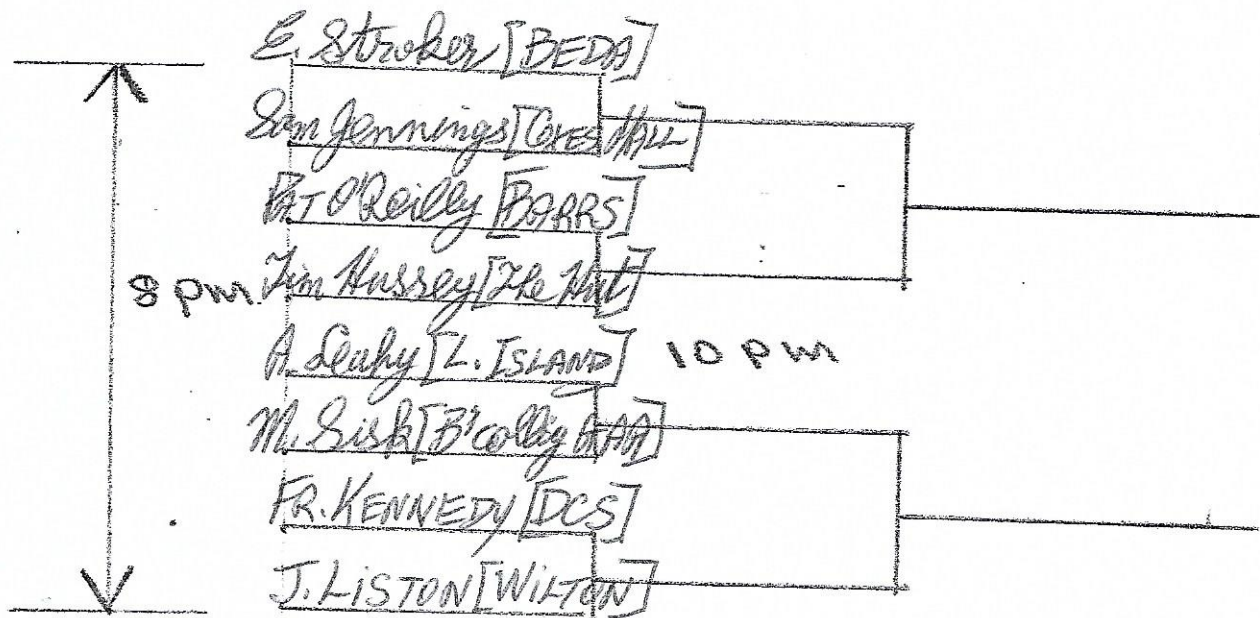 E. Stroker [BEDA]
Sam Jennings [COLES HALL]
PAT O'Reilly [BARRS]
8 pm. Tim Hussey [The Hut]
A. Leahy [L. ISLAND] 10 pm
M. Sisk [B'collig GAA]
FR. KENNEDY [DCS]
J. LISTON [WILTON]